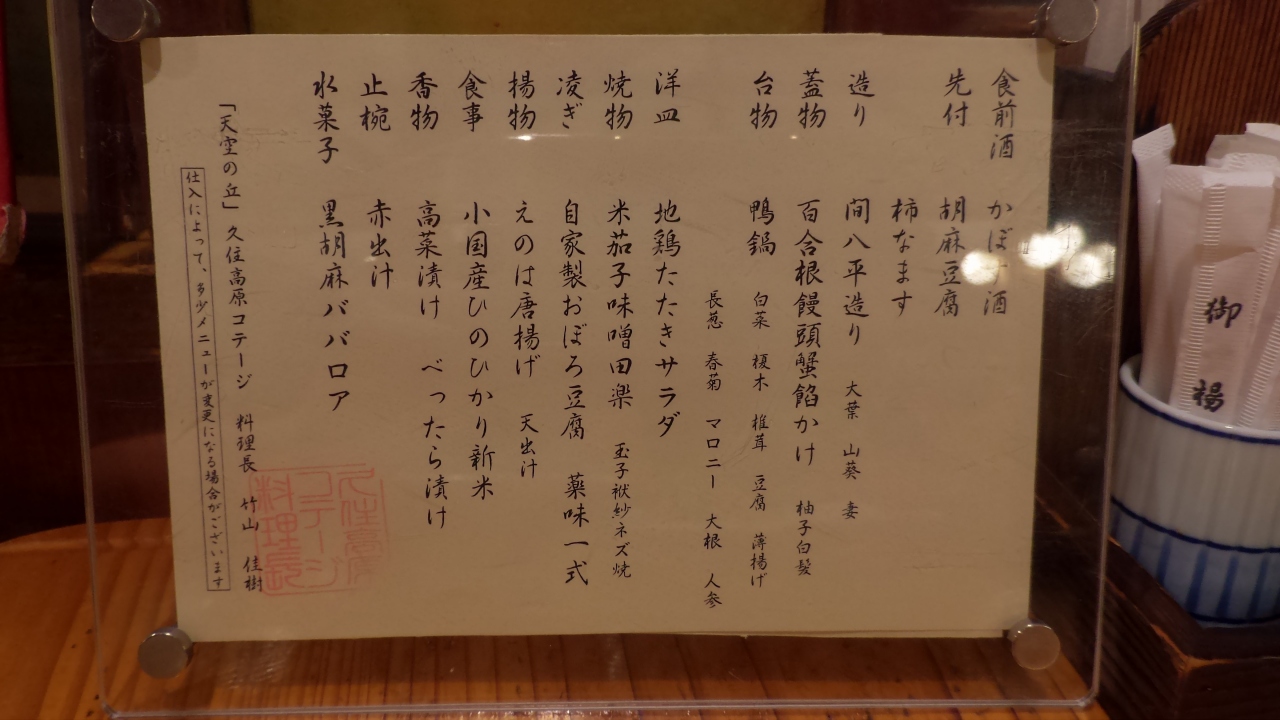 食前酒 かぼす酒
先付 胡麻豆腐
柿なます
造り 間八平造り 大葉 山葵 妻
蓋物 百合根饅頭蟹餡かけ 柚子白髪
台物 鴨鍋 白菜 榎木 椎茸 豆腐 薄揚げ
長葱 春菊 マロニー 大根 人参
洋皿 地鶏たたきサラダ
焼物 米茄子味噌田楽 玉子袱紗ネズ焼
凌ぎ 自家製おぼろ豆腐 薬味一式
揚物 えのは唐揚げ 天出汁
食事 小国産ひのひかり新米
香物 高菜漬け べったら漬け
止椀 赤出汁
水菓子 黒胡麻ババロア
「天空の丘」久住高原コテージ 料理長 竹山 佳樹
仕入によって、多少メニューが変更になる場合がございます
久住高原
コテージ
料理長
御
楊